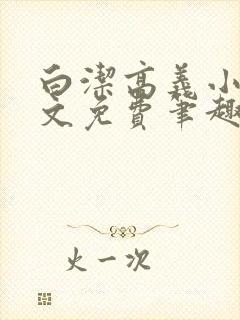 白潔高義小
文免費筆趣
火一次